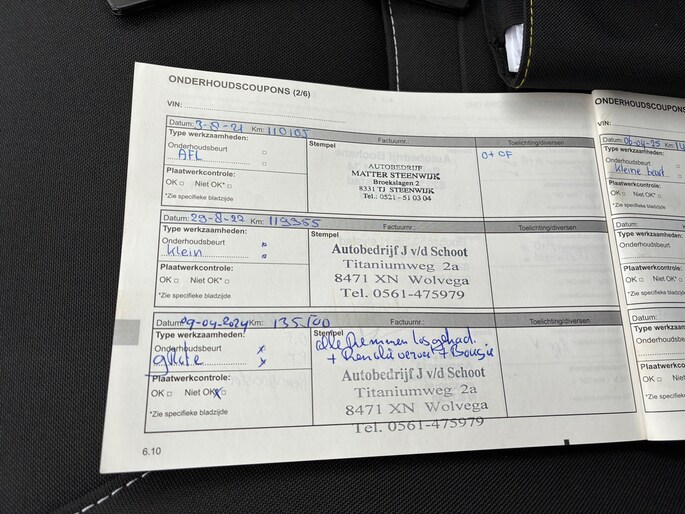 ONDERHOUDSCOUPONS (2/6)
VIN:
Datum: 3-8-21 Km: 110105
Factuurnr.:
Toelichting/diversen
Type werkzaamheden:
Stempel
O+OF
Onderhoudsbeurt
AFL
AUTOBEDRIJF
MATTER STEENWIJK
Broekslagen 2
8331 TJ STEENWIJK
Tel.: 0521 - 51 03 04
Plaatwerkcontrole:
OK Niet OK*
*Zie specifieke bladzijde
Datum: 29-8-22 Km: 119355
Factuurnr.:
Toelichting/diversen
Type werkzaamheden:
Stempel
Onderhoudsbeurt
Klein
Autobedrijf J v/d Schoot
Titaniumweg 2a
8471 XN Wolvega
Tel. 0561-475979
Plaatwerkcontrole:
OK Niet OK*
*Zie specifieke bladzijde
Datum: 09-04-2024 Km: 135500
Factuurnr.:
Toelichting/diversen
Type werkzaamheden:
Stempel
alle Remmen los gehad.
Onderhoudsbeurt
grote
Autobedrijf J v/d Schoot
Titaniumweg 2a
8471 XN Wolvega
Tel. 0561-475979
Plaatwerkcontrole:
OK Niet OK
*Zie specifieke bladzijde
6.10
ONDERHOUDSCOUPONS
VIN:
Datum: 06-04-25 Km:
Type werkzaamheden:
Onderhoudsbeurt
Kleine beurt
Plaatwerkcontrole:
OK Niet OK*
*Zie specifieke bladzijde
Datum:
Type werkzaamheden:
Onderhoudsbeurt
Plaatwerkcontrole:
OK Niet OK*
*Zie specifieke bladz
Datum:
Type werkz
Onderhouds
Plaatwerkco
OK Niet
*Zie specifie